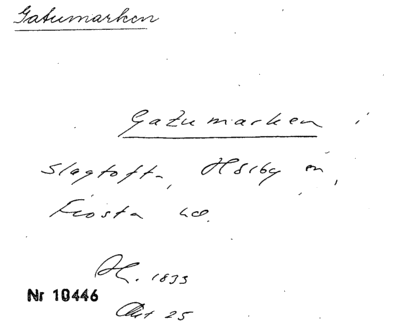 Gatumarken
Gatumarken i
Slagtofta, Hörby sn,
Frosta hd.
1833
Nr 10446
Akt 25